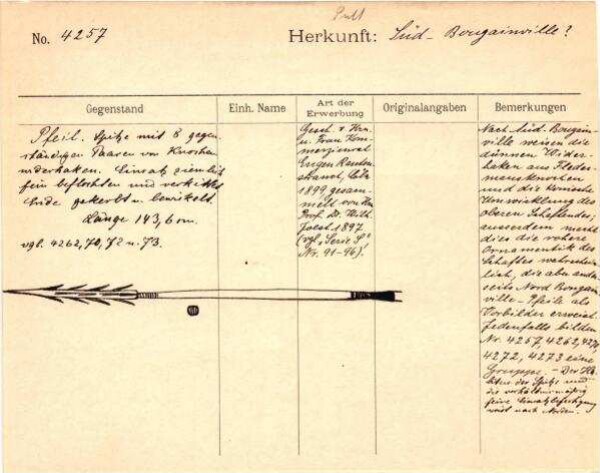 No. 4257
Herkunft: Süd-Bougainville?
Gegenstand
Einh. Name
Art der Erwerbung
Originalangaben
Bemerkungen
Pfeil. Spitze mit 8 gegen-
ständigen Paaren von Knochen-
widerhaken. Einsatz ziemlich
fein beflochten und verkittet
Ende gekerbt u. bewickelt.
Länge 143,6 cm.
vgl. 4262, 70, 72 u. 73.
Gesch. v. Hrn.
u. Frau Kom-
merzienrat
Eugen
1899 gesam-
melt von Hrn.
Prof. Dr. Wilh.
Joest 1897
(vgl. "Serie S"
Nr. 91-96)!
Nach Süd-Bougain-
ville weisen die
dünnen Wider-
haken aus Fleder-
mausknochen
und die konische
Umwicklung des
oberen Schaftendes;
ausserdem macht
dies die rohere
Ornamentik des
Schaftes wahrschein-
lich, die aber ander-
seits Nord Bougain-
ville-Pfeile als
Vorbilder erweist.
Jedenfalls bilden
Nr. 4257, 4262, 4270,
4272, 4273 eine
Gruppe. - Der
der Spitze und
die verhältnismässig
feine Einsatzbefestigung
weist nach Norden.